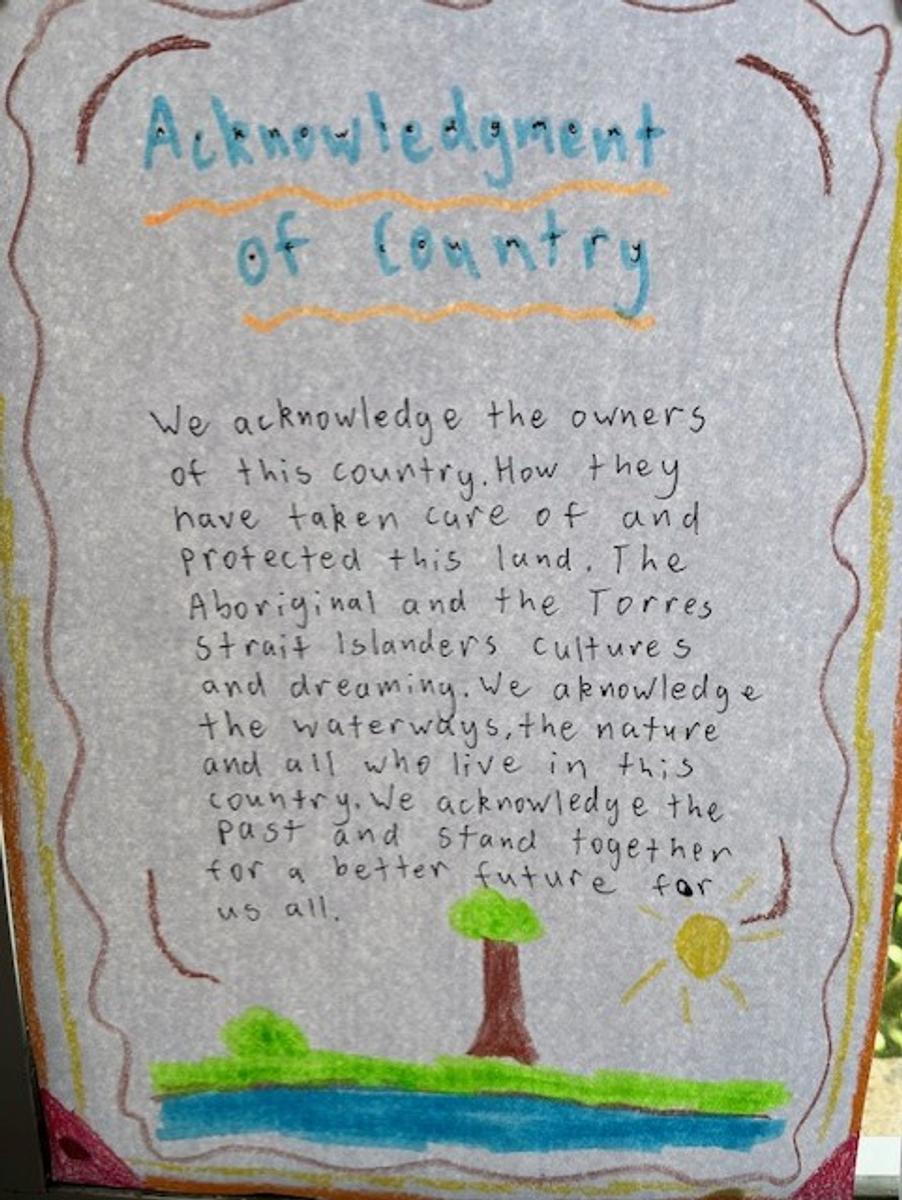 Acknowledgment
of Country
We acknowledge the owners
of this country. How they
have taken care of and
protected this land. The
Aboriginal and the Torres
Strait Islanders cultures
and dreaming. We aknowledge
the waterways, the nature
and all who live in this
country. We acknowledge the
past and stand together
for a better future for
us all.